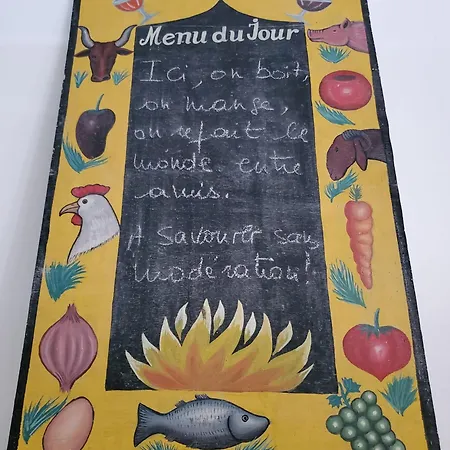 Menu du Jour
Ici, on boit,
on mange,
on refait le
monde entre
amis.
A savourer sans
modération!